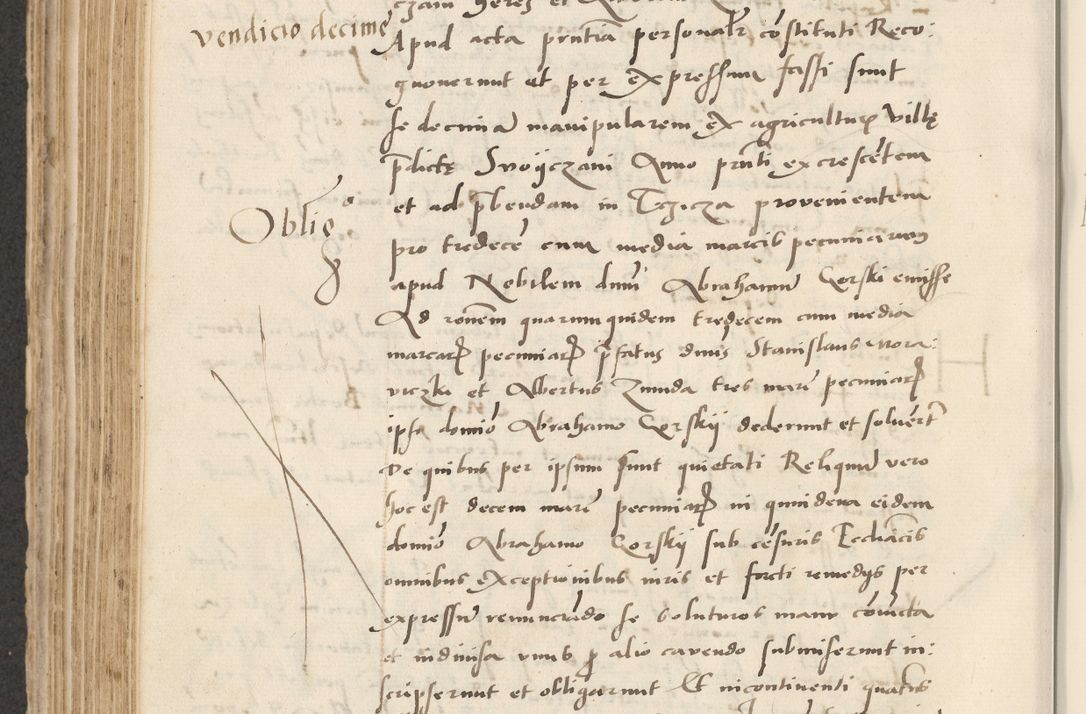 vendicio decime
Apud acta prntia personalr costituti Reco:
gnoverunt et per expressum fassi sunt
se decima manipularem ex agricultur villę
pdictę Svoyczani Anno prnti excrescetem
et ad pbendam in Tczicza provenientem
Oblig
pro tredece cum media marcis pecuniarum
apud Nobilem dnm Abrahamu Gorski emisse
Ad ronem quarum quidem tredecem cum media
marcar pecuniar pfatus dnus Stanislaus Mora:
viczki et Albertus Zmuda tres mar pecuniar
ipsi domio Abrahamo Gorskij dederunt et solvert
De quibus per ipsum sunt quietati Reliquu vero
hoc est decem mar pecuniar in quindena eidem
domio Abrahamo Gorskij sub cesuris Eccliacis
omnibus exceptionibus iuris et fori remedys per
expressu renunciado se soluturos manu coiucta
et indivisa unus p alio cavendo submiserunt in:
scripserunt et obligarunt Et incontinenti quatus